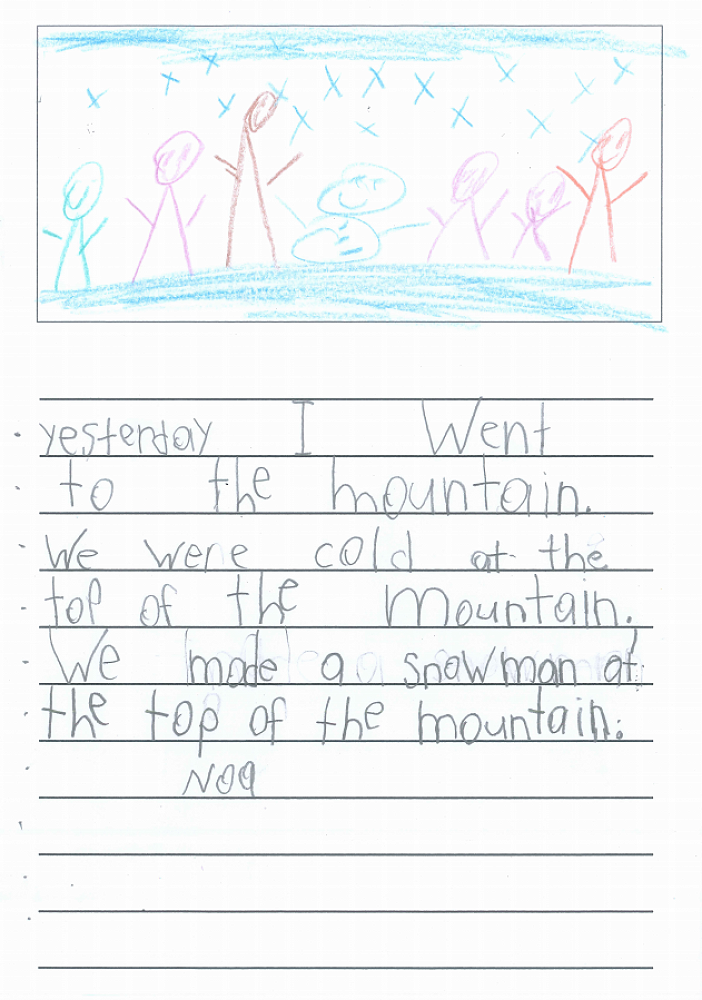 yesterday I Went
to the mountain.
We were cold at the
top of the Mountain.
We made a snowman at
the top of the mountain.
Noa